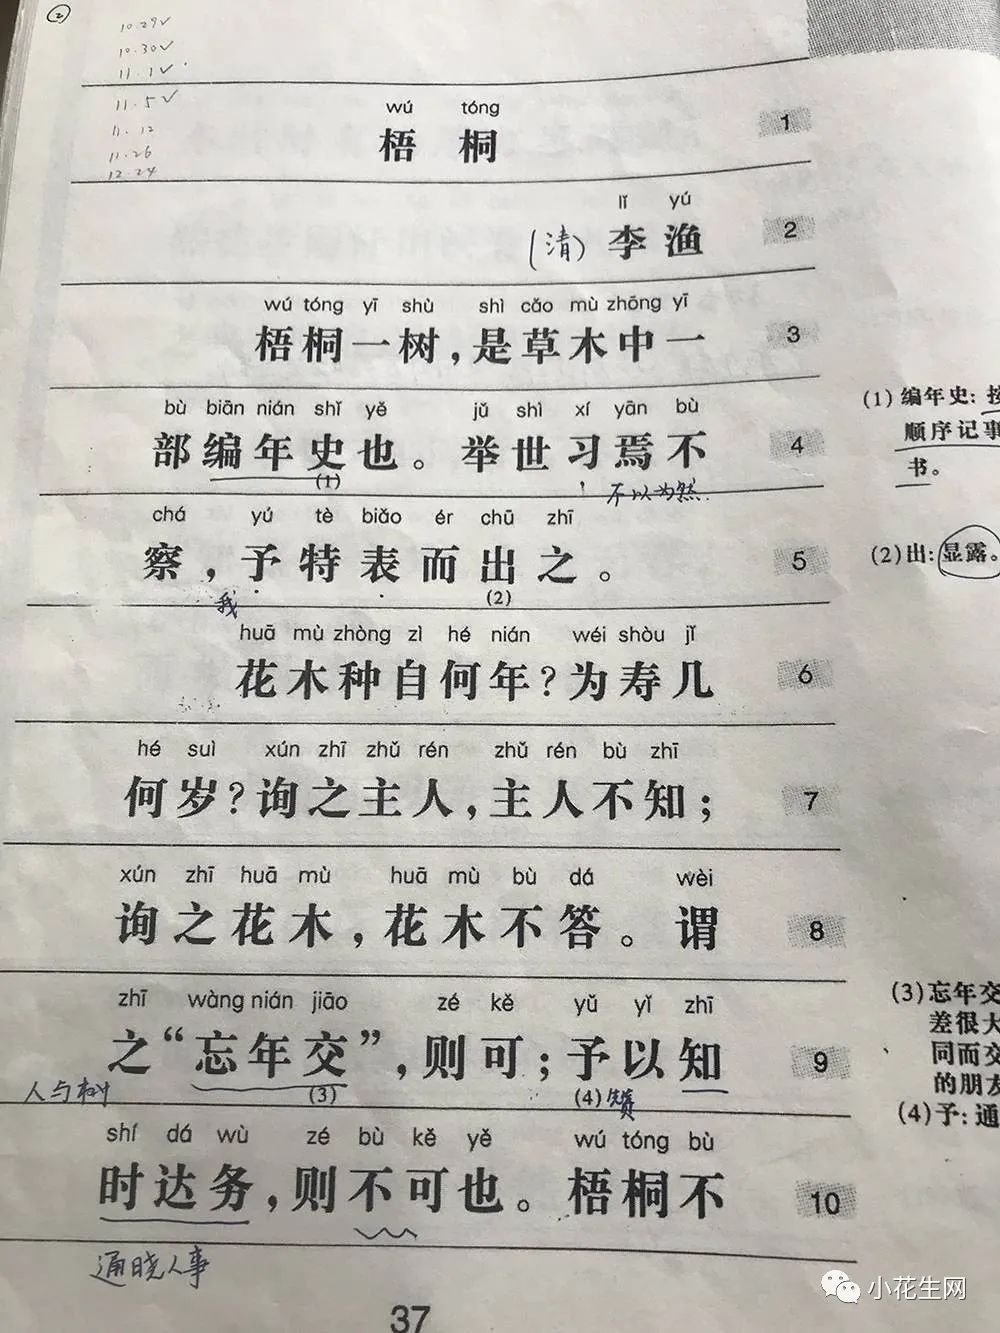 2
10.29✓
10.30✓
11.1✓
11.5✓
11.12
11.26
12.24
wú tóng
梧桐 1
lǐ yú
(清) 李渔 2
wú tóng yī shù shì cǎo mù zhōng yī
梧桐一树，是草木中一 3
bù biān nián shǐ yě jǔ shì xí yān bù
部编年史也。举世习焉不 4
(1) 不以为然
chá yú tè biǎo ér chū zhī
察，予特表而出之。 5
我 (2)
huā mù zhòng zì hé nián wéi shòu jǐ
花木种自何年？为寿几 6
hé suì xún zhī zhǔ rén zhǔ rén bù zhī
何岁？询之主人，主人不知； 7
xún zhī huā mù huā mù bù dá wèi
询之花木，花木不答。谓 8
zhī wàng nián jiāo zé kě yǔ yǐ zhī
之“忘年交”，则可；予以知 9
人与树 (3) (4) 赞
shí dá wù zé bù kě yě wú tóng bù
时达务，则不可也。梧桐不 10
通晓人事
37
(1) 编年史：按
顺序记事
书。
(2) 出：显露。
(3) 忘年交
差很大
同而交
的朋友
(4) 予：通
小花生网